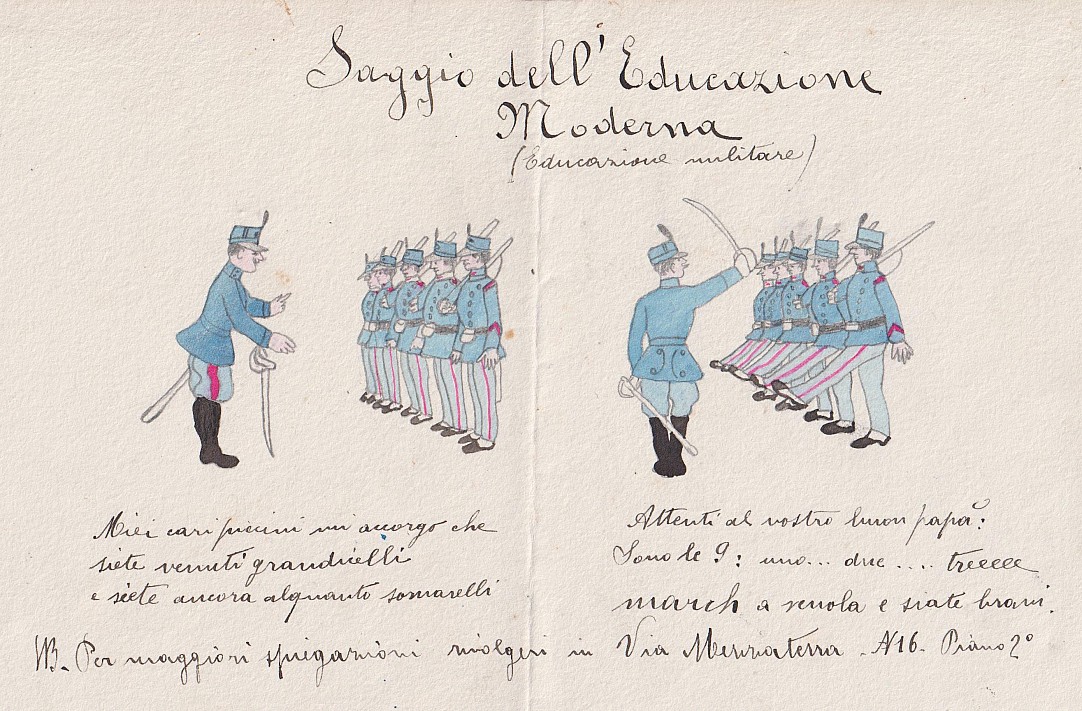 Saggio dell'Educazione
Moderna
(Educazione militare)
Miei cari piccini mi accorgo che
siete venuti grandicelli
e siete ancora alquanto somarelli
Attenti al vostro buon papà:
Sono le 9: uno... due.... treeeee
march a scuola e siate bravi.
NB. Per maggiori spiegazioni rivolgersi in Via Mezzaterra - N16 - Piano 2º